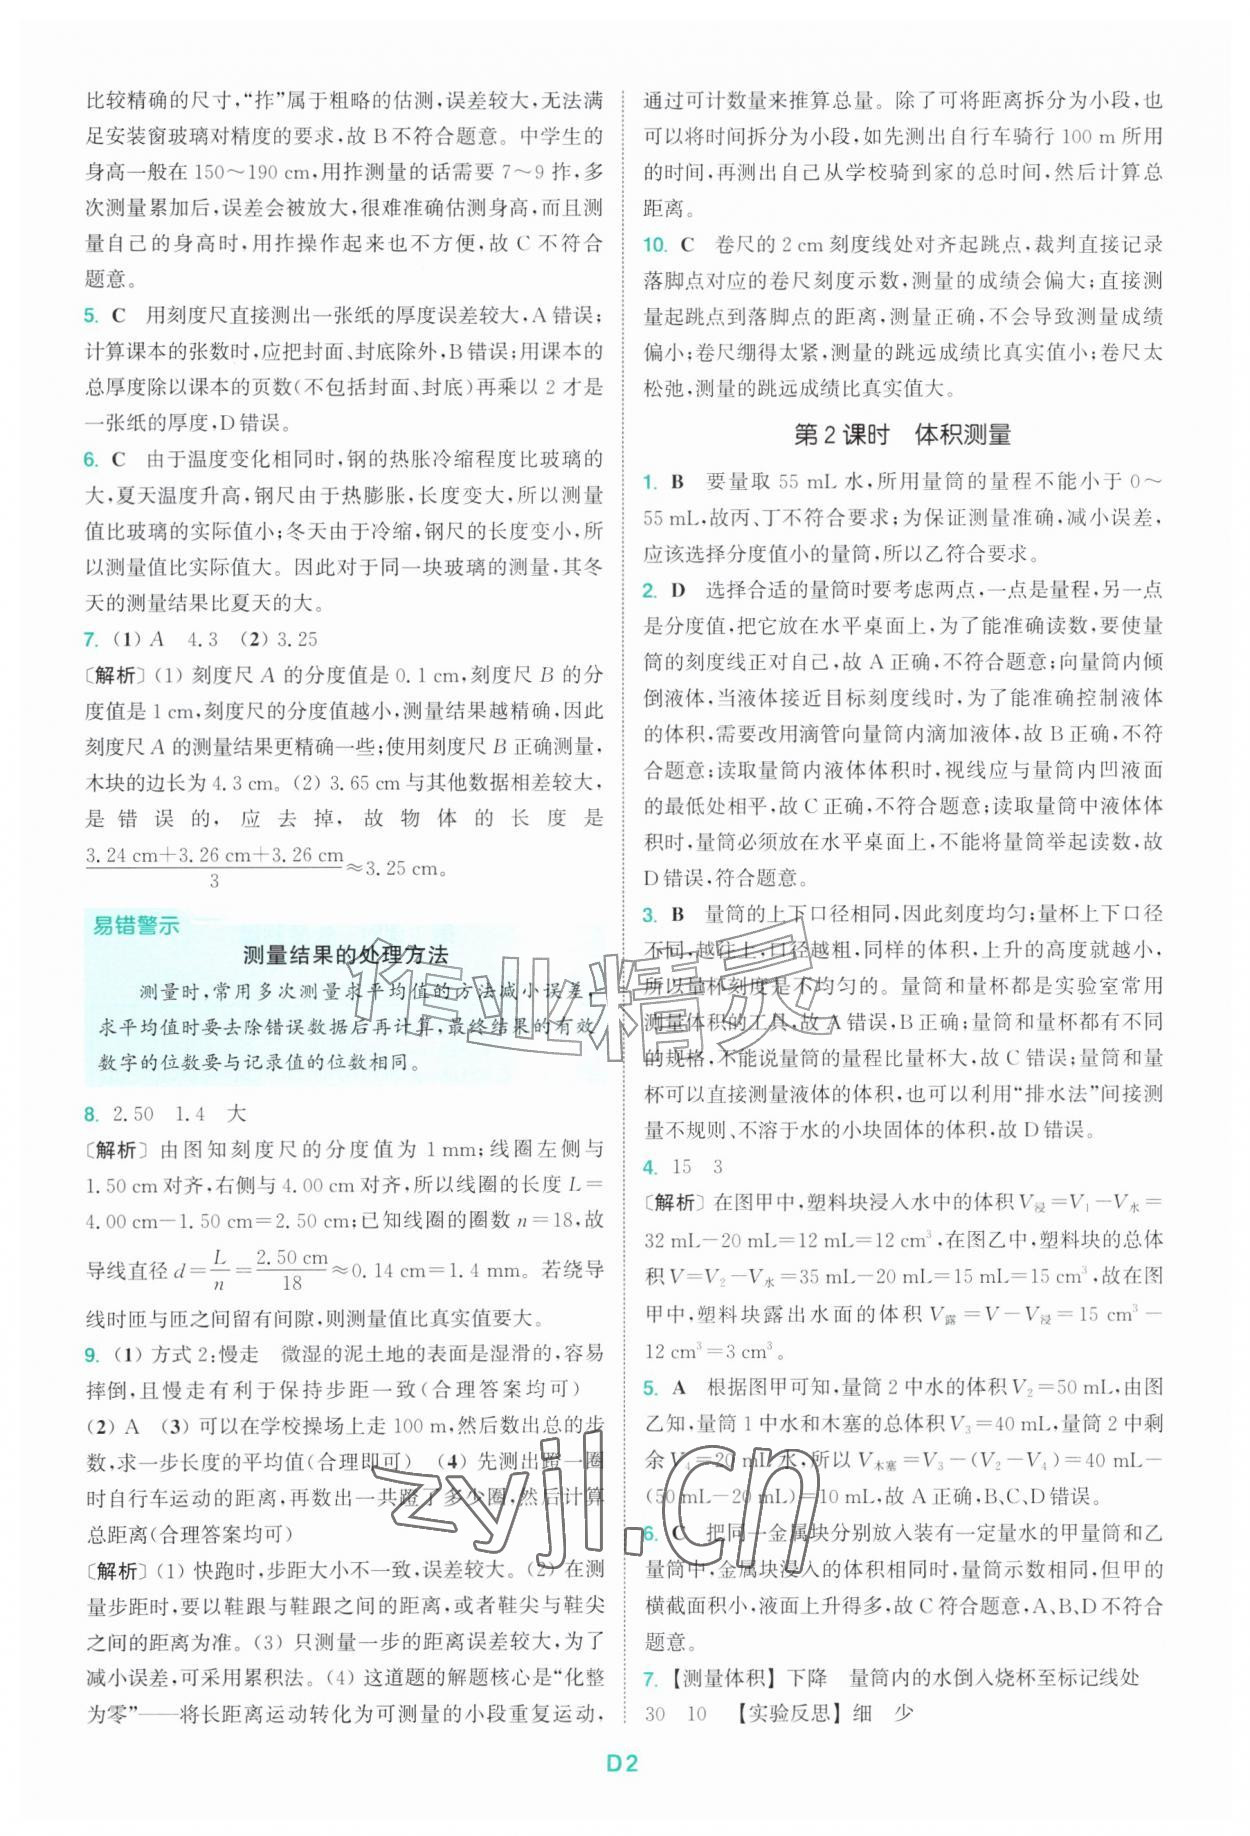 比较精确的尺寸,“拃”属于粗略的估测,误差较大,无法满
足安装窗玻璃对精度的要求,故 B 不符合题意。中学生的
身高一般在 150～190 cm,用拃测量的话需要 7～9 拃,多
次测量累加后,误差会被放大,很难准确估测身高,而且测
量自己的身高时,用拃操作起来也不方便,故 C 不符合
题意。
5. C 用刻度尺直接测出一张纸的厚度误差较大,A 错误;
计算课本的张数时,应把封面、封底除外,B 错误;用课本的
总厚度除以课本的页数(不包括封面、封底)再乘以 2 才是
一张纸的厚度,D 错误。
6. C 由于温度变化相同时,钢的热胀冷缩程度比玻璃的
大,夏天温度升高,钢尺由于热膨胀,长度变大,所以测量
值比玻璃的实际值小;冬天由于冷缩,钢尺的长度变小,所
以测量值比实际值大。因此对于同一块玻璃的测量,其冬
天的测量结果比夏天的大。
7. (1) A 4.3 (2) 3.25
〔解析〕(1) 刻度尺 A 的分度值是 0.1 cm,刻度尺 B 的分
度值是 1 cm,刻度尺的分度值越小,测量结果越精确,因此
刻度尺 A 的测量结果更精确一些;使用刻度尺 B 正确测量,
木块的边长为 4.3 cm。(2) 3.65 cm 与其他数据相差较大,
是错误的,应去掉,故物体的长度是
(3.24 cm+3.26 cm+3.26 cm)/3≈3.25 cm。
易错警示
测量结果的处理方法
测量时,常用多次测量求平均值的方法减小误差,
求平均值时要去除错误数据后再计算,最终结果的有效
数字的位数要与记录值的位数相同。
8. 2.50 1.4 大
〔解析〕由图知刻度尺的分度值为 1 mm;线圈左侧与
1.50 cm 对齐,右侧与 4.00 cm 对齐,所以线圈的长度 L=
4.00 cm−1.50 cm=2.50 cm;已知线圈的圈数 n=18,故
导线直径 d=L/n=2.50 cm/18≈0.14 cm=1.4 mm。若绕导
线时匝与匝之间留有间隙,则测量值比真实值要大。
9. (1) 方式 2:慢走 微湿的泥土地的表面是湿滑的,容易
摔倒,且慢走有利于保持步距一致(合理答案均可)
(2) A (3) 可以在学校操场上走 100 m,然后数出总的步
数,求一步长度的平均值(合理即可) (4) 先测出蹬一圈
时自行车运动的距离,再数出一共蹬了多少圈,然后计算
总距离(合理答案均可)
〔解析〕(1) 快跑时,步距大小不一致,误差较大。(2) 在测
量步距时,要以鞋跟与鞋跟之间的距离,或者鞋尖与鞋尖
之间的距离为准。(3) 只测量一步的距离误差较大,为了
减小误差,可采用累积法。(4) 这道题的解题核心是“化整
为零”——将长距离运动转化为可测量的小段重复运动,
通过可计数量来推算总量。除了可将距离拆分为小段,也
可以将时间拆分为小段,如先测出自行车骑行 100 m 所用
的时间,再测出自己从学校骑到家的总时间,然后计算总
距离。
10. C 卷尺的 2 cm 刻度线处对齐起跳点,裁判直接记录
落脚点对应的卷尺刻度示数,测量的成绩会偏大;直接测
量起跳点到落脚点的距离,测量正确,不会导致测量成绩
偏小;卷尺绷得太紧,测量的跳远成绩比真实值小;卷尺太
松弛,测量的跳远成绩比真实值大。
第 2 课时 体积测量
1. B 要量取 55 mL 水,所用量筒的量程不能小于 0～
55 mL,故丙、丁不符合要求;为保证测量准确,减小误差,
应该选择分度值小的量筒,所以乙符合要求。
2. D 选择合适的量筒时要考虑两点,一点是量程,另一点
是分度值,把它放在水平桌面上,为了能准确读数,要使量
筒的刻度线正对自己,故 A 正确,不符合题意;向量筒内倾
倒液体,当液体接近目标刻度线时,为了能准确控制液体
的体积,需要改用滴管向量筒内滴加液体,故 B 正确,不符
合题意;读取量筒内液体体积时,视线应与量筒内凹液面
的最低处相平,故 C 正确,不符合题意;读取量筒中液体体
积时,量筒必须放在水平桌面上,不能将量筒举起读数,故
D 错误,符合题意。
3. B 量筒的上下口径相同,因此刻度均匀;量杯上下口径
不同,越往上,口径越粗,同样的体积,上升的高度就越小,
所以量杯刻度是不均匀的。量筒和量杯都是实验室常用
测量体积的工具,故 A 错误,B 正确;量筒和量杯都有不同
的规格,不能说量筒的量程比量杯大,故 C 错误;量筒和量
杯可以直接测量液体的体积,也可以利用“排水法”间接测
量不规则、不溶于水的小块固体的体积,故 D 错误。
4. 15 3
〔解析〕在图甲中,塑料块浸入水中的体积 V浸=V₁−V水=
32 mL−20 mL=12 mL=12 cm³,在图乙中,塑料块的总体
积 V=V₂−V水=35 mL−20 mL=15 mL=15 cm³,故在图
甲中,塑料块露出水面的体积 V露=V−V浸=15 cm³−
12 cm³=3 cm³。
5. A 根据图甲可知,量筒 2 中水的体积 V₂=50 mL,由图
乙知,量筒 1 中水和木塞的总体积 V₃=40 mL,量筒 2 中剩
余 V₄=20 mL 水,所以 V木塞=V₃−(V₂−V₄)=40 mL−
(50 mL−20 mL)=10 mL,故 A 正确,B、C、D 错误。
6. C 把同一金属块分别放入装有一定量水的甲量筒和乙
量筒中,金属块浸入的体积相同时,量筒示数相同,但甲的
横截面积小,液面上升得多,故 C 符合题意,A、B、D 不符合
题意。
7. 【测量体积】下降 量筒内的水倒入烧杯至标记线处
30 10 【实验反思】细 少
作业精灵
zyjl.cn
D2